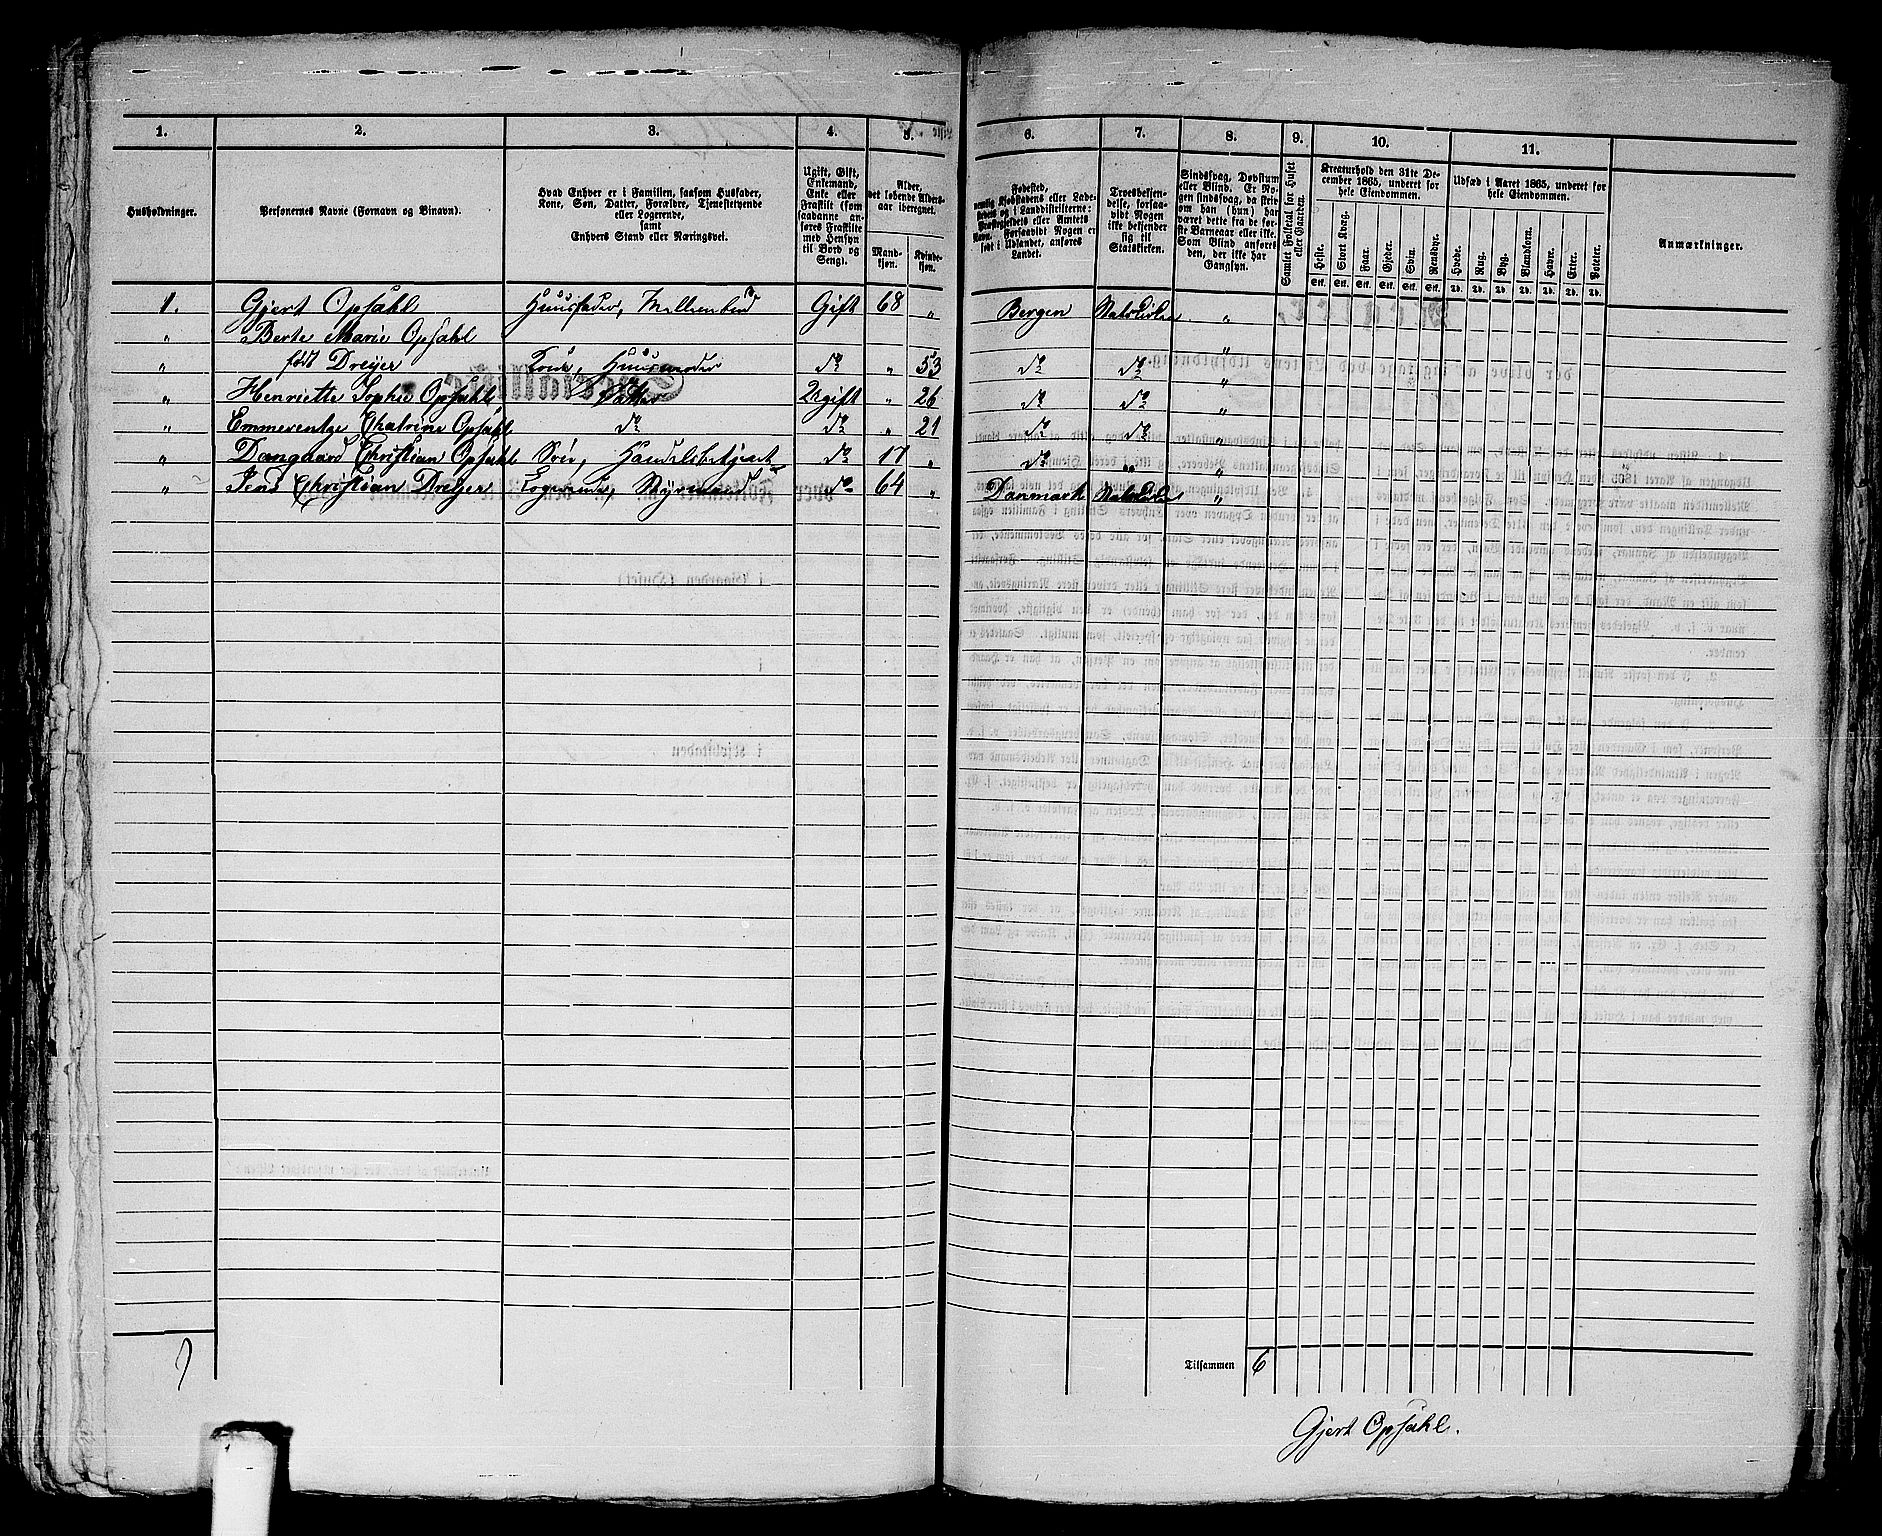 1. 2. 3. 4. 5. 6. 7. 8. 9. 10. 11.
Husholdninger.
Personernes Navne (Fornavn og Binavn).
Hvad Enhver er i Familien, saasom Husfader,
Kone, Søn, Datter, Forældre, Tjenestetyende
eller Logerende,
samt
Enhvers Stand eller Næringsvei.
Ugift, Gift,
Enkemand,
Enke eller
Fraskilt (som
saadanne an-
føres Fraskilte
med Hensyn
til Bord og
Seng).
Alder,
det løbende Alders-
aar iberegnet.
Mand-
kjøn.
Kvinde-
kjøn.
Fødested,
nemlig Kjøbstadens eller Lade-
stedets og i Landdistrikterne:
Præstegjeldets eller Amtets
Navn. Forsaavidt Nogen er
født i Udlandet, anføres
Landet.
Troesbekjen-
delse, forsaa-
vidt Nogen
ikke bekjender
sig til
Statskirken.
Sindssvag, Døvstum
eller Blind. Er No-
gen sindssvag, da skriv
om han (hun) har
været dette fra de før-
ste Barneaar eller ikke.
Som Blind anføres
den, der ikke har
Gangsyn.
Samlet Folketal for Huset
eller Gaarden.
Kreaturhold den 31te De-
cember 1865, underet for
hele Eiendommen.
Heste.
Stort Kvæg.
Faar.
Gjeder.
Svin.
Rensdyr.
Stk. Stk. Stk. Stk. Stk. Stk.
Udsæd i Aaret 1865, underet for
hele Eiendommen.
Hvede.
Rug.
Byg.
Blandkorn.
Havre.
Erter.
Poteter.
Td. Td. Td. Td. Td. Td. Td.
Anmærkninger.
1. Gjert Opsahl Huusfader, Gift 68 „ Bergen Statskirken „
„ Berte Marie Opsahl
„ født Dreyer Kone, Huusmoder do „ 53 do do „
„ Henriette Sophie Opsahl Datter Ugift „ 26 do do „
„ Emmerentze Chatrine Opsahl do do „ 21 do do „
„ Dangaard Christian Opsahl Søn, Handelsbetjent do 17 „ do „ „
„ Jens Christian Dreyer Logerende, Styrmand do 64 „ Danmark Statskirken „
Tilsammen 6
Gjert Opsahl.